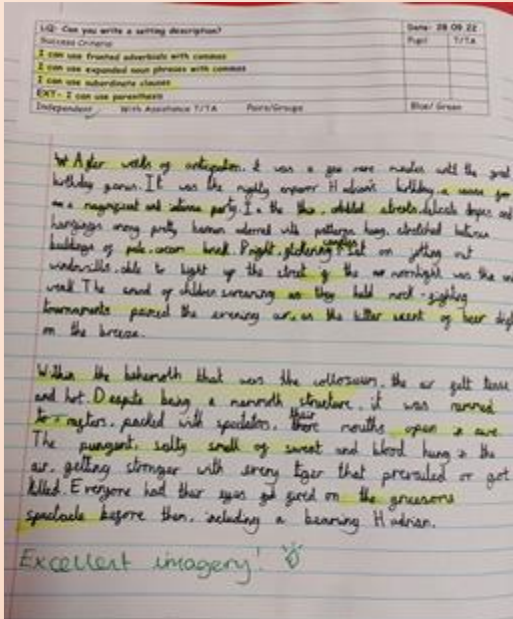 LQ: Can you write a setting description?
Date: 28.09.22
Success Criteria
Pupil T/TA
I can use fronted adverbials with commas
I can use expanded noun phrases with commas
I can use subordinate clauses
EXT- I can use parenthesis
Independent With Assistance T/TA Pairs/Groups
Blue/ Green
After weeks of anticipation, it was a few more minutes until the great
birthday games. It was the mighty emperor Hadrian's birthday, a cause for
a magnificent and intense party. In the streets, delicate drapes and
hangings among pretty adorned with patterns hung, stretched between
buildings of pale, cream brick. Bright, glistening sat on jutting out
windowsills, able to light up the street if the moonlight was
weak. The sound of children screaming as they held mock-fighting
tournaments the evening air, as the bitter scent of beer
on the breeze.
Within the behemoth that was the colosseum, the air felt tense
and hot. Despite being a mammoth structure, it was rammed
to rafters, packed with spectators, their mouths open in awe
The pungent, salty smell of sweat and blood hung in the
air, getting stronger with every tiger that prevailed or got
killed. Everyone had their eyes on the gruesome
spectacle before them, including a beaming Hadrian.
Excellent imagery!